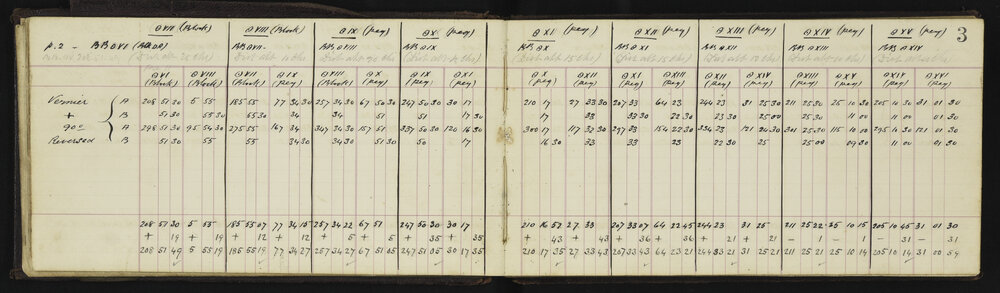 3
θ VII (Block) θ VIII (Block) θ IX (Peg) θ X (Peg) θ XI (Peg) θ XII (Peg) θ XIII (Peg) θ XIV (Peg) θ XV (Peg)
p. 2 - BB θ VI BB θ VII BB θ VIII BB θ IX BB θ X BB θ XI BB θ XII BB θ XIII BB θ XIV
θ VI θ VIII θ VII θ IX θ VIII θ X θ IX θ XI θ X θ XII θ XI θ XIII θ XII θ XIV θ XIII θ XV θ XIV θ XVI
(Block) (Block) (Block) (Peg) (Block) (Peg) (Peg) (Peg) (Peg) (Peg) (Peg) (Peg) (Peg) (Peg) (Peg) (Peg) (Peg) (Peg)
Vernier A 208 51 30 5 55 185 55 77 34 30 257 34 30 67 51 30 247 50 30 30 17 210 17 27 33 30 207 33 64 23 244 23 31 25 30 211 25 30 25 10 30 205 10 30 31 01 30
+ B 51 30 55 30 55 30 34 34 51 51 17 30 17 33 33 30 22 30 23 30 25 00 25 30 10 30 11 00 01 30
90° A 298 51 30 95 54 30 275 55 167 34 347 34 30 157 51 337 50 30 120 16 30 300 17 117 32 30 297 33 154 22 30 334 23 121 24 30 301 25 30 115 10 00 295 10 30 121 01 30
Reversed B 51 30 55 55 34 30 34 30 51 30 50 17 16 30 33 33 23 22 30 25 25 00 09 30 11 00 01 30
208 51 30 5 55 185 55 07 77 34 15 257 34 22 67 51 247 50 30 30 17 210 16 52 27 33 207 33 07 64 22 45 244 23 31 25 211 25 22 25 10 15 205 10 45 31 01 30
+ 19 + 19 + 12 + 12 + 5 + 5 + 35 + 35 + 43 + 43 + 36 + 36 + 21 + 21 - 1 - 1 - 31 - 31
208 51 49 5 55 19 185 55 19 77 34 27 257 34 27 67 51 05 247 51 05 30 17 35 210 17 35 27 33 43 207 33 43 64 23 21 244 23 21 31 25 21 211 25 21 25 10 14 205 10 14 31 00 59